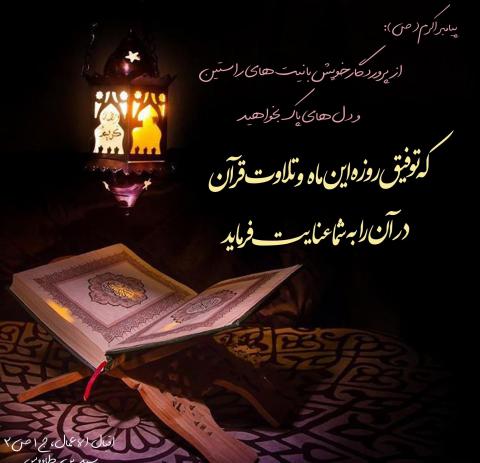 پیامبر اکرم (ص):
از پروردگار خویش با نیت های راستین
و دل های پاک بخواهید
که توفیق روزه این ماه و تلاوت قرآن
در آن را به شما عنایت فرماید
اقبال الاعمال، ج ۱ ص ۲